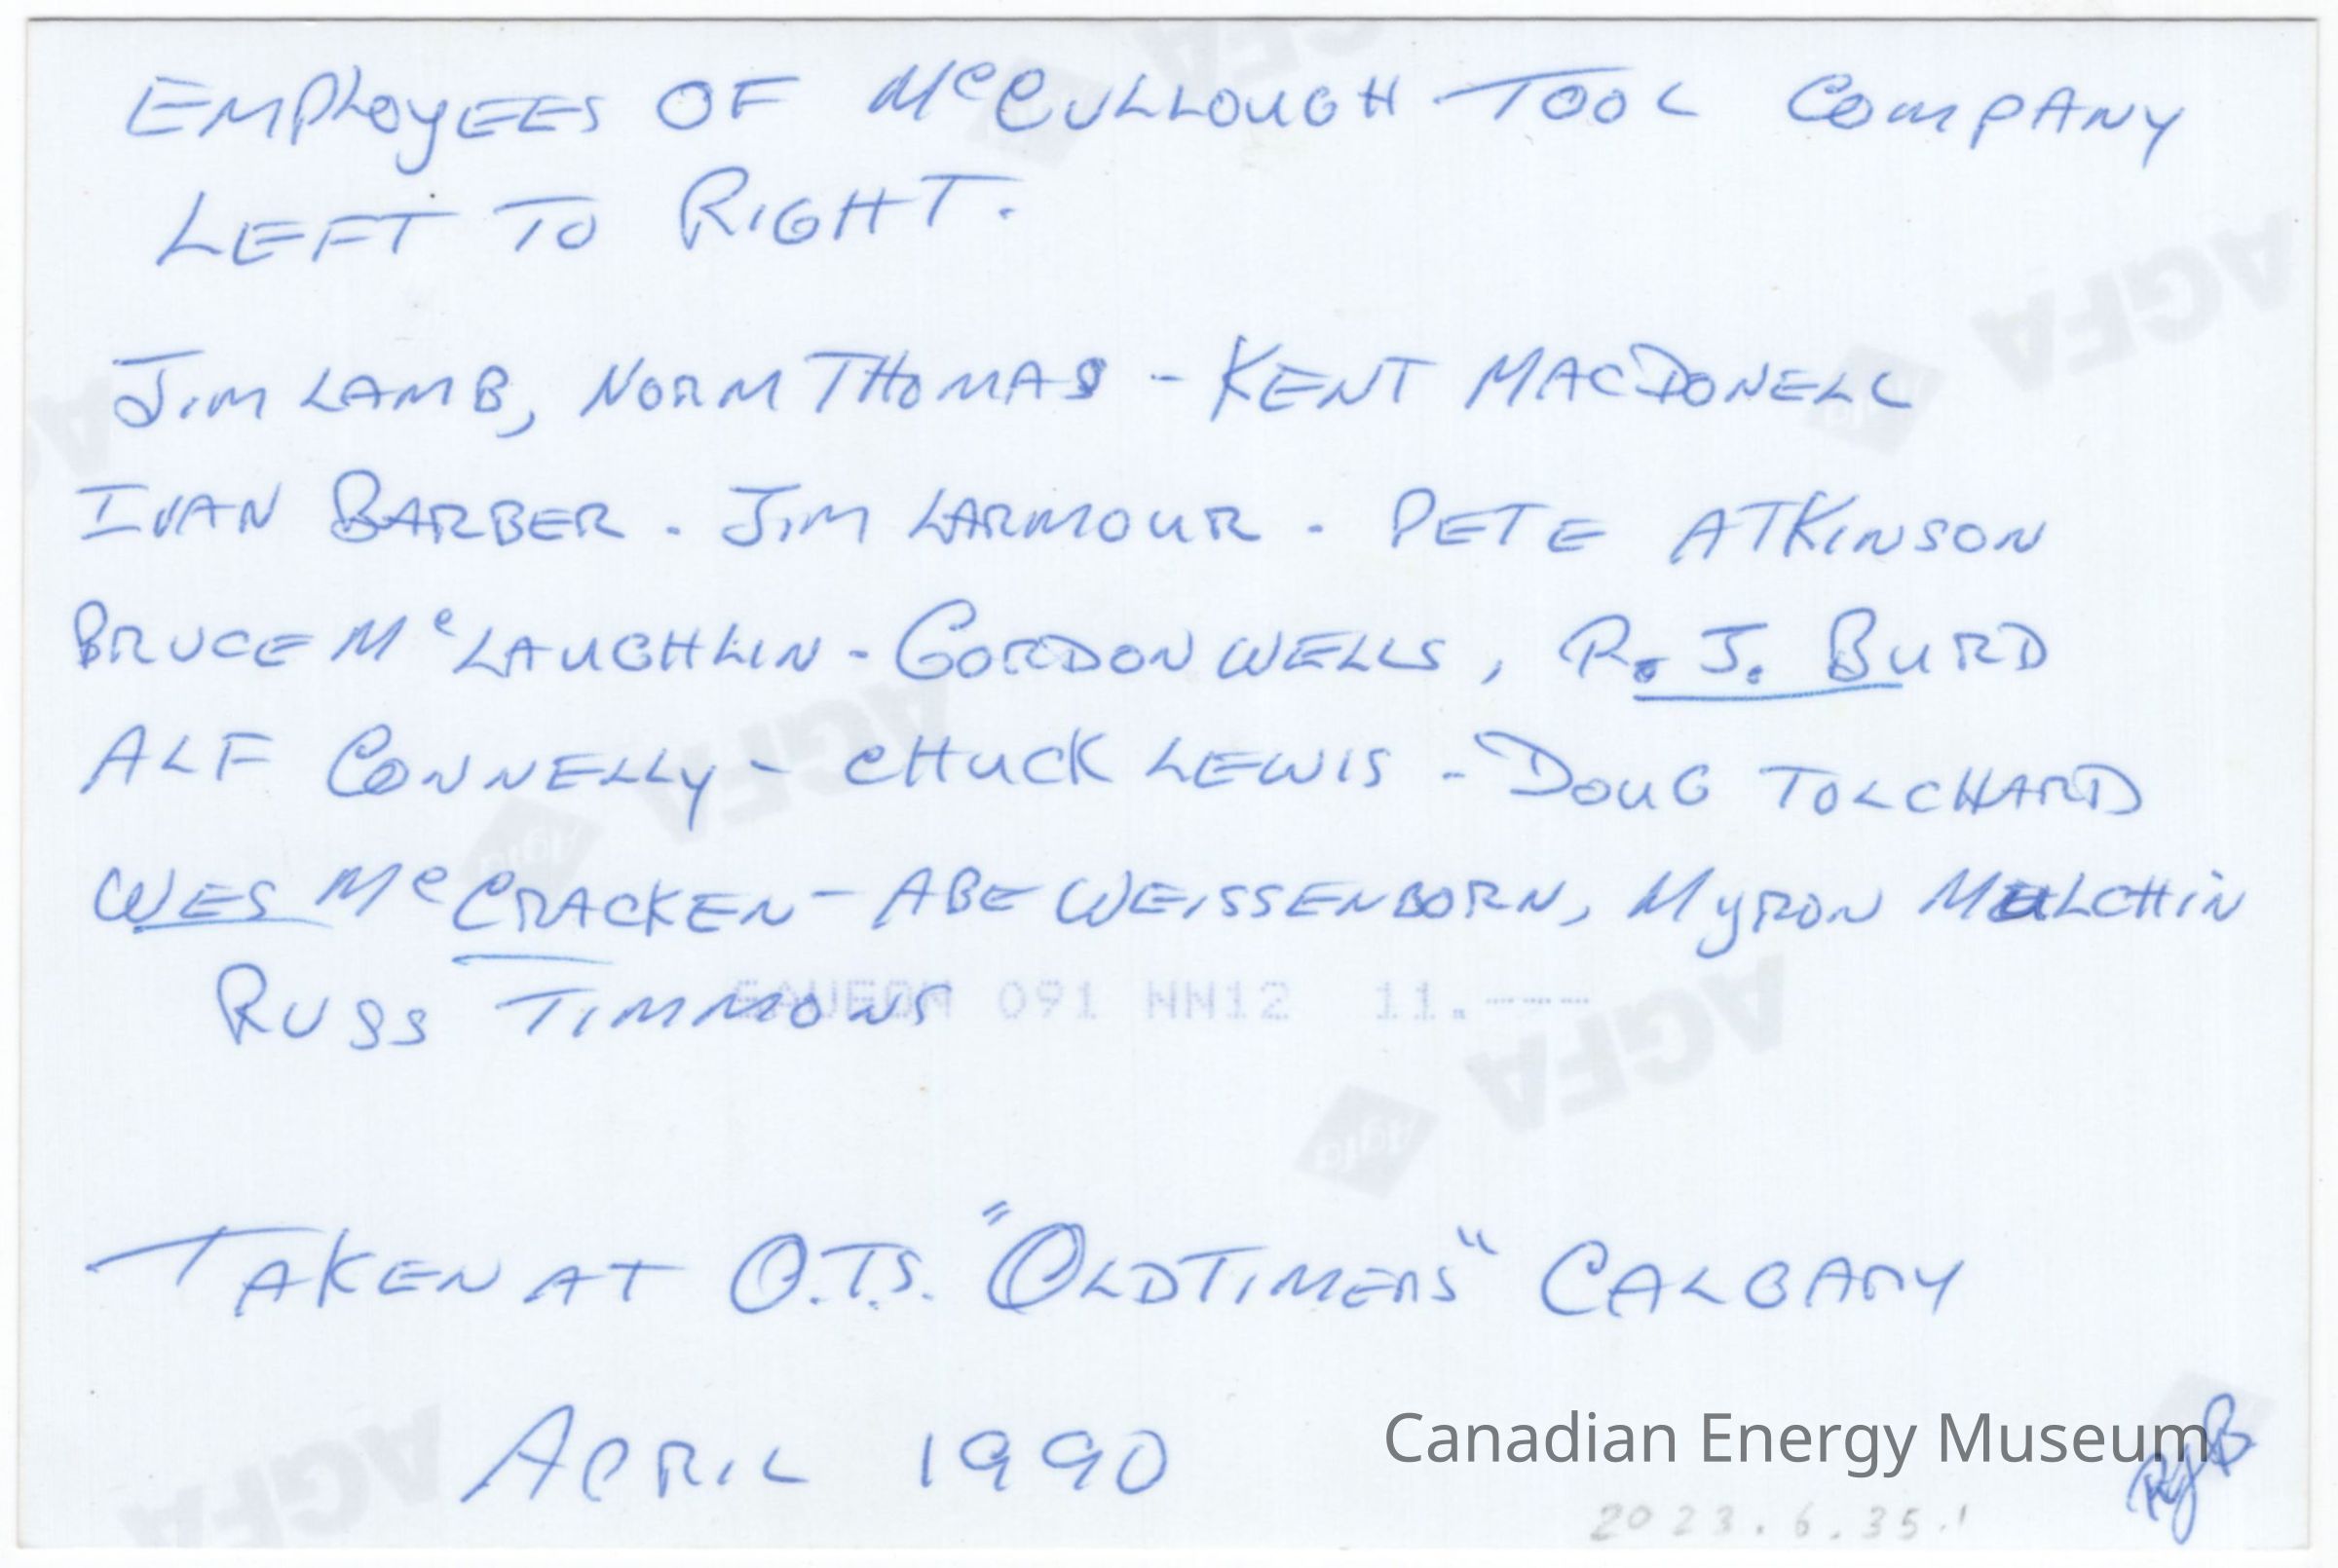 EMPLOYEES OF McCULLOUGH TOOL COMPANY
LEFT TO RIGHT.
JIM LAMB, NORM THOMAS - KENT MACDONELL
IVAN BARBER - JIM LARMOUR - PETE ATKINSON
BRUCE McLAUGHLIN - GORDON WELLS, R. J. BURD
ALF CONNELLY - CHUCK LEWIS - DOUG TOLCHARD
WES McCRACKEN - ABE WEISSENBORN, MYRON MULCHIN
RUSS TIMMONS
091 NN12 11.---
TAKEN AT O.T.S. "OLDTIMERS" CALGARY
APRIL 1990
Canadian Energy Museum
RJB
2023.6.35.1
AGFA
AGFA
AGFA
AGFA
AGFA